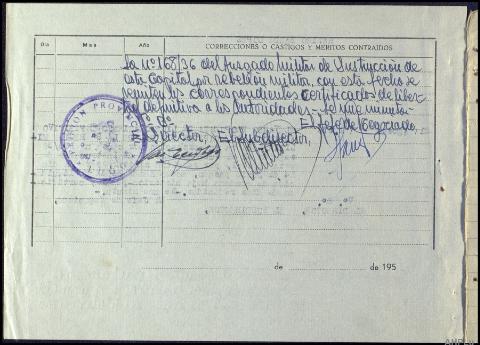 Día Mes Año CORRECCIONES O CASTIGOS Y MERITOS CONTRAIDOS
sa nº 168/36 del Juzgado Militar de Instrucción de
esta Capital por rebelión militar, con esta fecha se
remiten los correspondientes certificados de liber-
tad definitiva a las Autoridades
El Jefe de Negociado,
Director, El Subdirector,
PRISION PROVINCIAL
de de 195